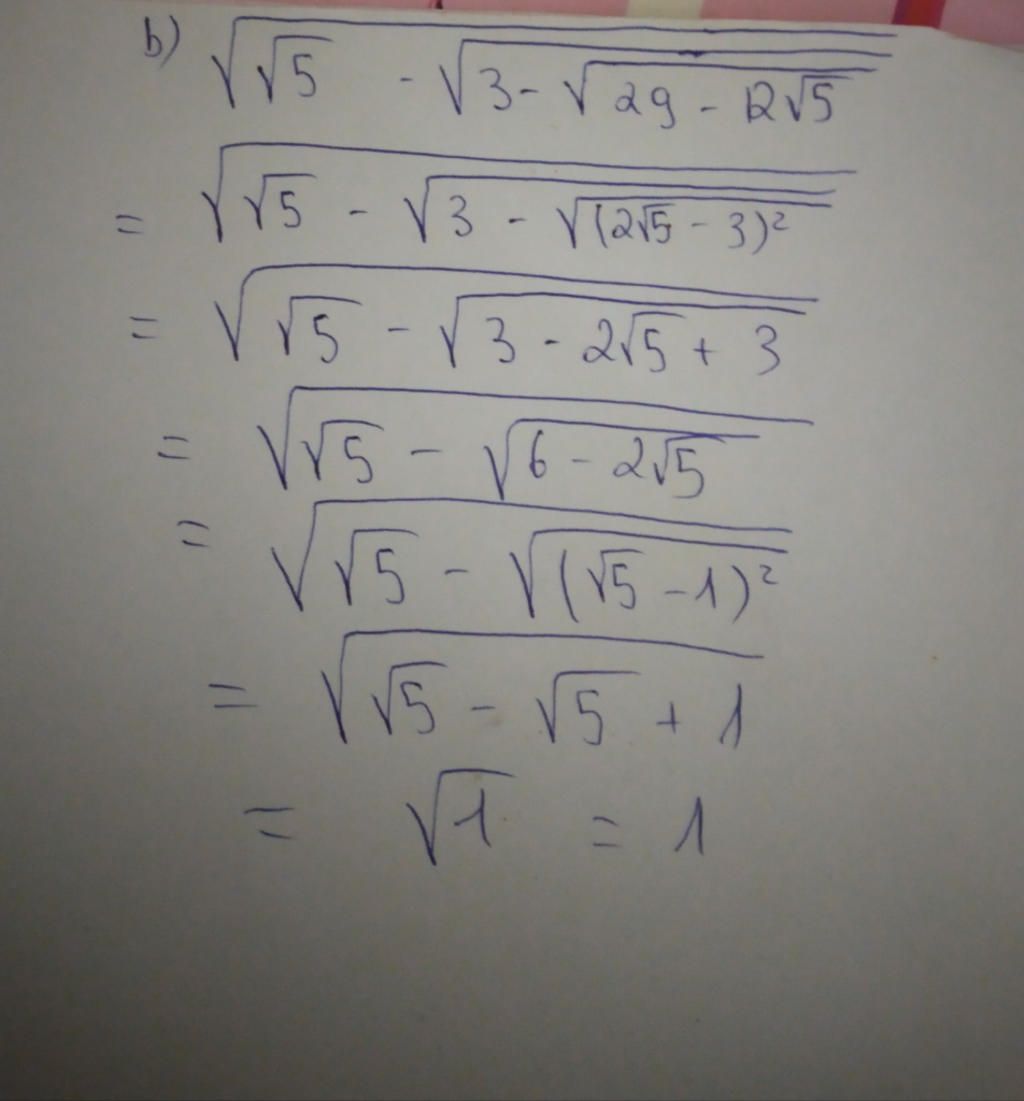 b) √(√5 - √(3 - √(29 - 12√5)))
= √(√5 - √(3 - √((2√5 - 3)²)))
= √(√5 - √(3 - 2√5 + 3))
= √(√5 - √(6 - 2√5))
= √(√5 - √((√5 - 1)²))
= √(√5 - √5 + 1)
= √1 = 1